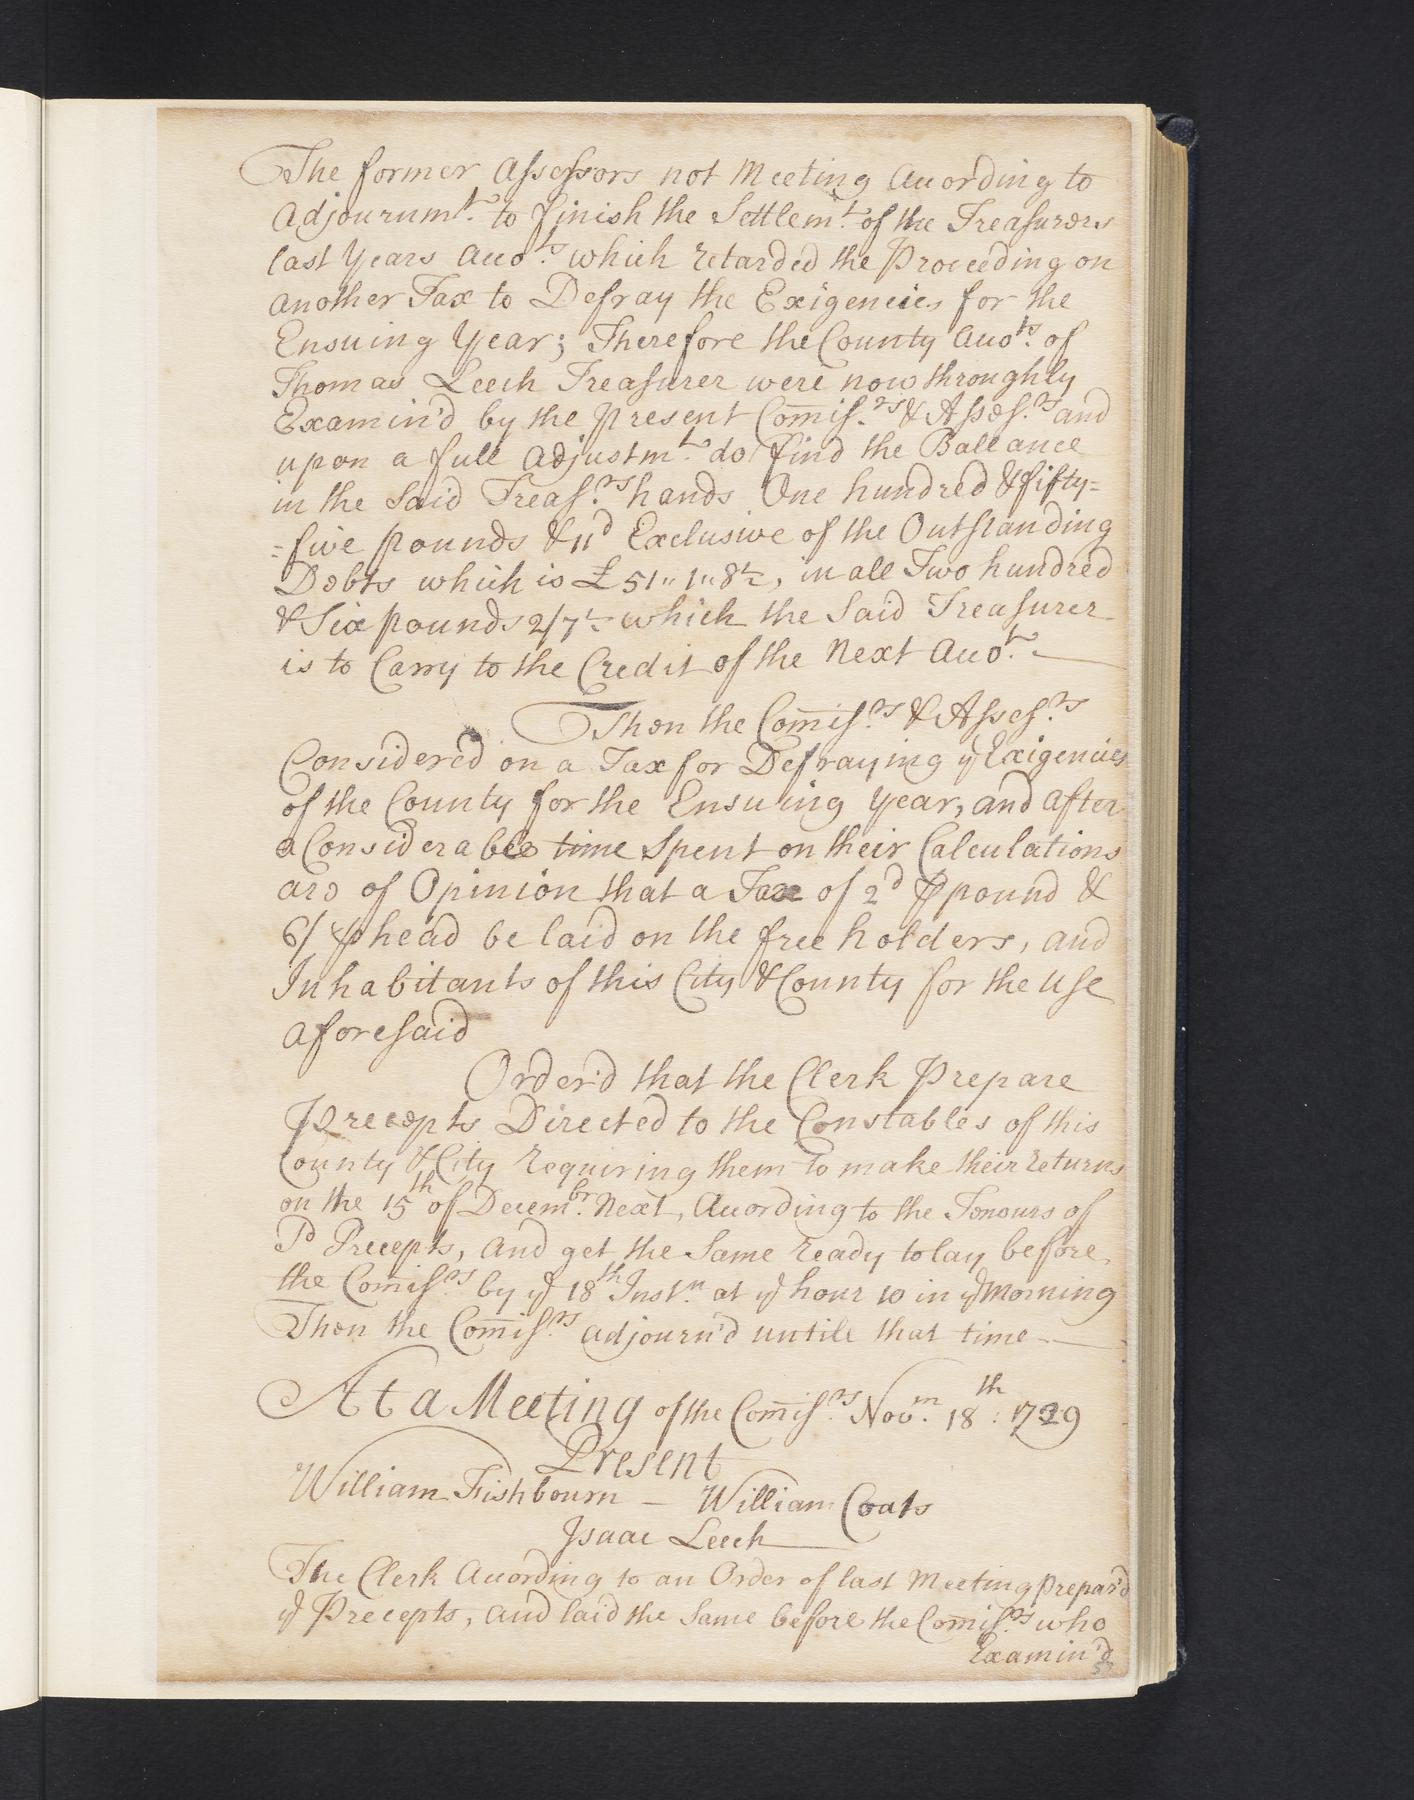 The former Assessors not Meeting according to
adjournmt. to finish the Settlemt. of the Treasurers
last Years accots. which retarded the Proceeding on
another Tax to Defray the Exigencies for the
Ensuing Year; Therefore the County accots. of
Thomas Leech Treasurer were now throughly
Examin'd by the present Comissrs. & Assessrs. and
upon a full adjustmt. do find the Ballance
in the Said Treasrs. hands One hundred & fifty=
=five pounds & 11d Exclusive of the Outstanding
Debts which is £51„1„8½, in all Two hundred
& Six pounds 2/7½ which the Said Treasurer
is to Carry to the Credit of the Next accot.
Then the Comissrs. & Assessrs.
Considered on a Tax for Defraying ye Exigencies
of the County for the Ensuing year, and after
a Considerable time Spent on their Calculations
are of Opinion that a Tax of 2d ⅌ pound &
6/ ⅌ head be laid on the freeholders, and
Inhabitants of this City & County for the Use
aforesaid
Order'd that the Clerk Prepare
Precepts Directed to the Constables of this
County & City requiring them to make their returns
on the 15th of Decembr. Next, according to the Tenours of
Sd Precepts, and get the Same ready to lay before
the Comissrs. by ye 18th Instn. at ye hour 10 in ye Morning
Then the Comissrs. adjourn'd untill that time
At a Meeting of the Comissrs. Novm. 18th: 1729
Present
William Fishbourn — William Coats
Isaac Leech
The Clerk according to an Order of last Meeting prepar'd
ye Precepts, and laid the Same before the Comissrs. who
Examin'd